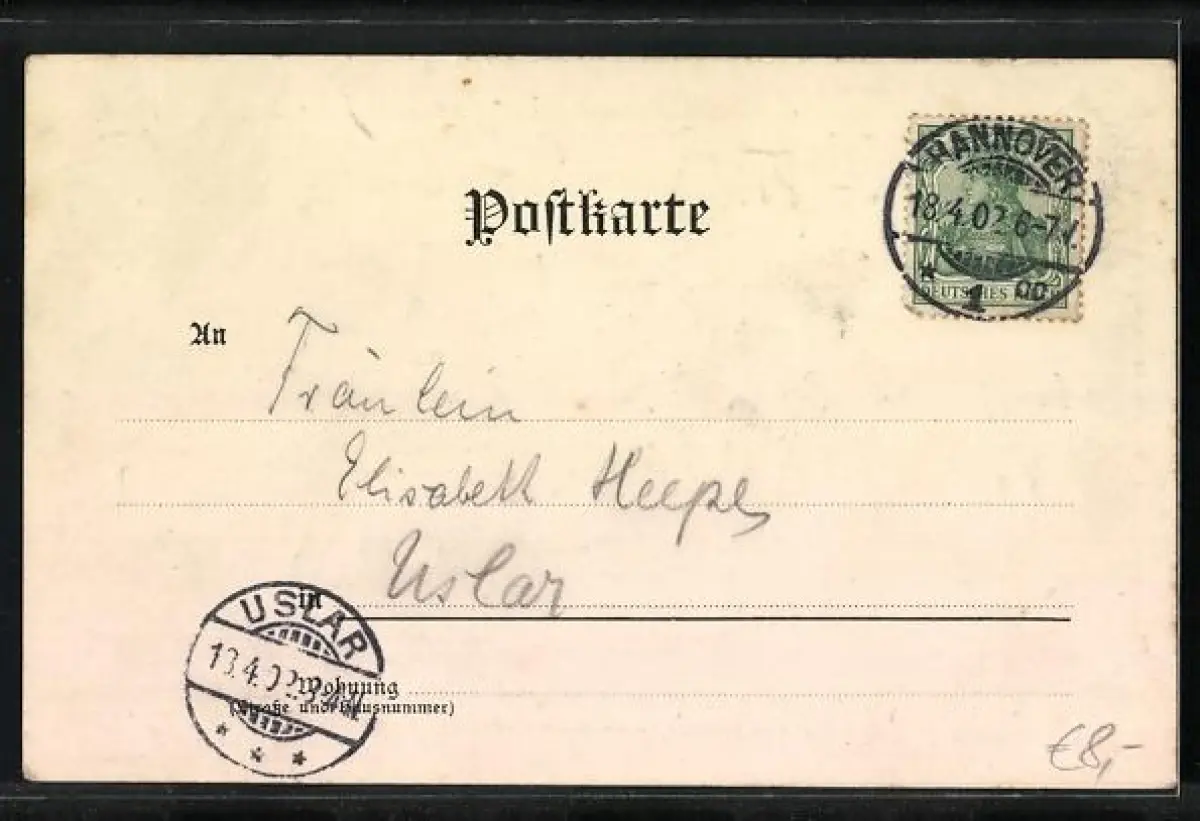 Postkarte
HANNOVER
18.4.02. 6-7N.
* 1 oo
DEUTSCHES
An
Fräulein
Elisabeth Heepe
in Uslar
USLAR
4.02
* * *
Wohnung
(Straße und Hausnummer)
€8,-